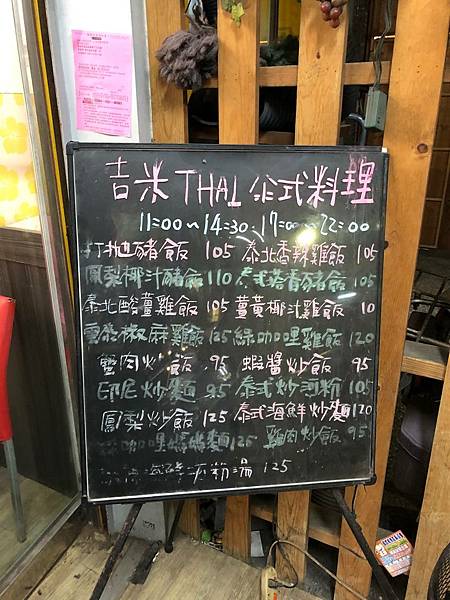 吉米 THAI 泰式料理
11:00~14:30、17:00~22:00
打拋豬飯 105 泰北香辣雞飯 105
鳳梨椰汁豬飯 110 泰式塔香豬飯 105
泰北酸薑雞飯 105 薑黃椰汁雞飯 10
雲泰椒麻雞飯 125 綠咖哩雞飯 120
蟹肉炒飯 95 蝦醬炒飯 95
印尼炒麵 95 泰式炒河粉 105
鳳梨炒飯 125 泰式海鮮炒麵 120
咖哩 麵 125 雞肉炒飯 95
酸 粉湯 125